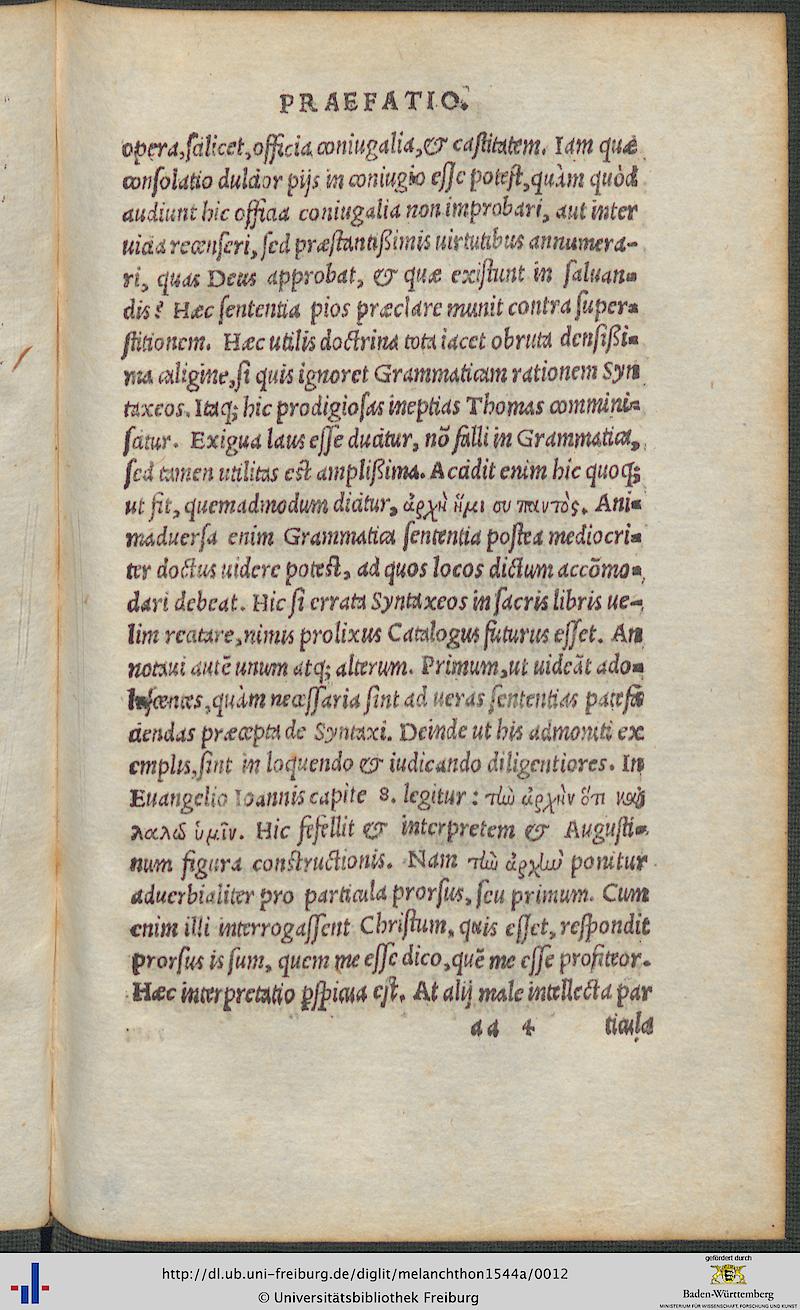 PRAEFATIO.
opera, scilicet, officia coniugalia, & castitatem. Iam quæ
consolatio dulcior pijs in coniugio esse potest, quàm quòd
audiunt hic officia coniugalia non improbari, aut inter
uicia recenseri, sed præstantißimis uirtutibus annumera-
ri, quas Deus approbat, & quæ existunt in saluan-
dis? Hæc sententia pios præclare munit contra super-
stitionem. Hæc utilis doctrina tota iacet obruta densißi-
ma caligine, si quis ignoret Grammaticam rationem Syn
taxeos. Itaq; hic prodigiosas ineptias Thomas commini-
scitur. Exigua laus esse ducitur, nõ falli in Grammatica,
sed tamen utilitas est amplißima. Accidit enim hic quoq;
ut fit, quemadmodum dicitur, ἀρχὴ ἥμι συ παντὸς. Ani-
maduersa enim Grammatica sententia postea mediocri-
ter doctus uidere potest, ad quos locos dictum accõmo-
dari debeat. Hic si errata Syntaxeos in sacris libris ue-
lim recitare, nimis prolixus Catalogus futurus esset. An
notaui autẽ unum atq; alterum. Primum, ut uideãt ado-
lescentes, quàm necessaria sint ad ueras sententias patefa
ciendas præcepta de Syntaxi. Deinde ut his admoniti ex
emplis, sint in loquendo & iudicando diligentiores. In
Euangelio Ioannis capite 8. legitur: τὴν ἀρχὴν ὅτι καὶ
λαλῶ ὑμῖν. Hic fefellit & interpretem & Augusti-
num figura constructionis. Nam τὴν ἀρχὴν ponitur
aduerbialiter pro particula prorsus, seu primum. Cum
enim illi interrogassent Christum, quis esset, respondit
prorsus is sum, quem me esse dico, quẽ me esse profiteor.
Hæc interpretatio ꝑspicua est. At alij male intellecta par
aa 4 ticula
http://dl.ub.uni-freiburg.de/diglit/melanchthon1544a/0012
© Universitätsbibliothek Freiburg
gefördert durch
Baden-Württemberg
MINISTERIUM FÜR WISSENSCHAFT, FORSCHUNG UND KUNST